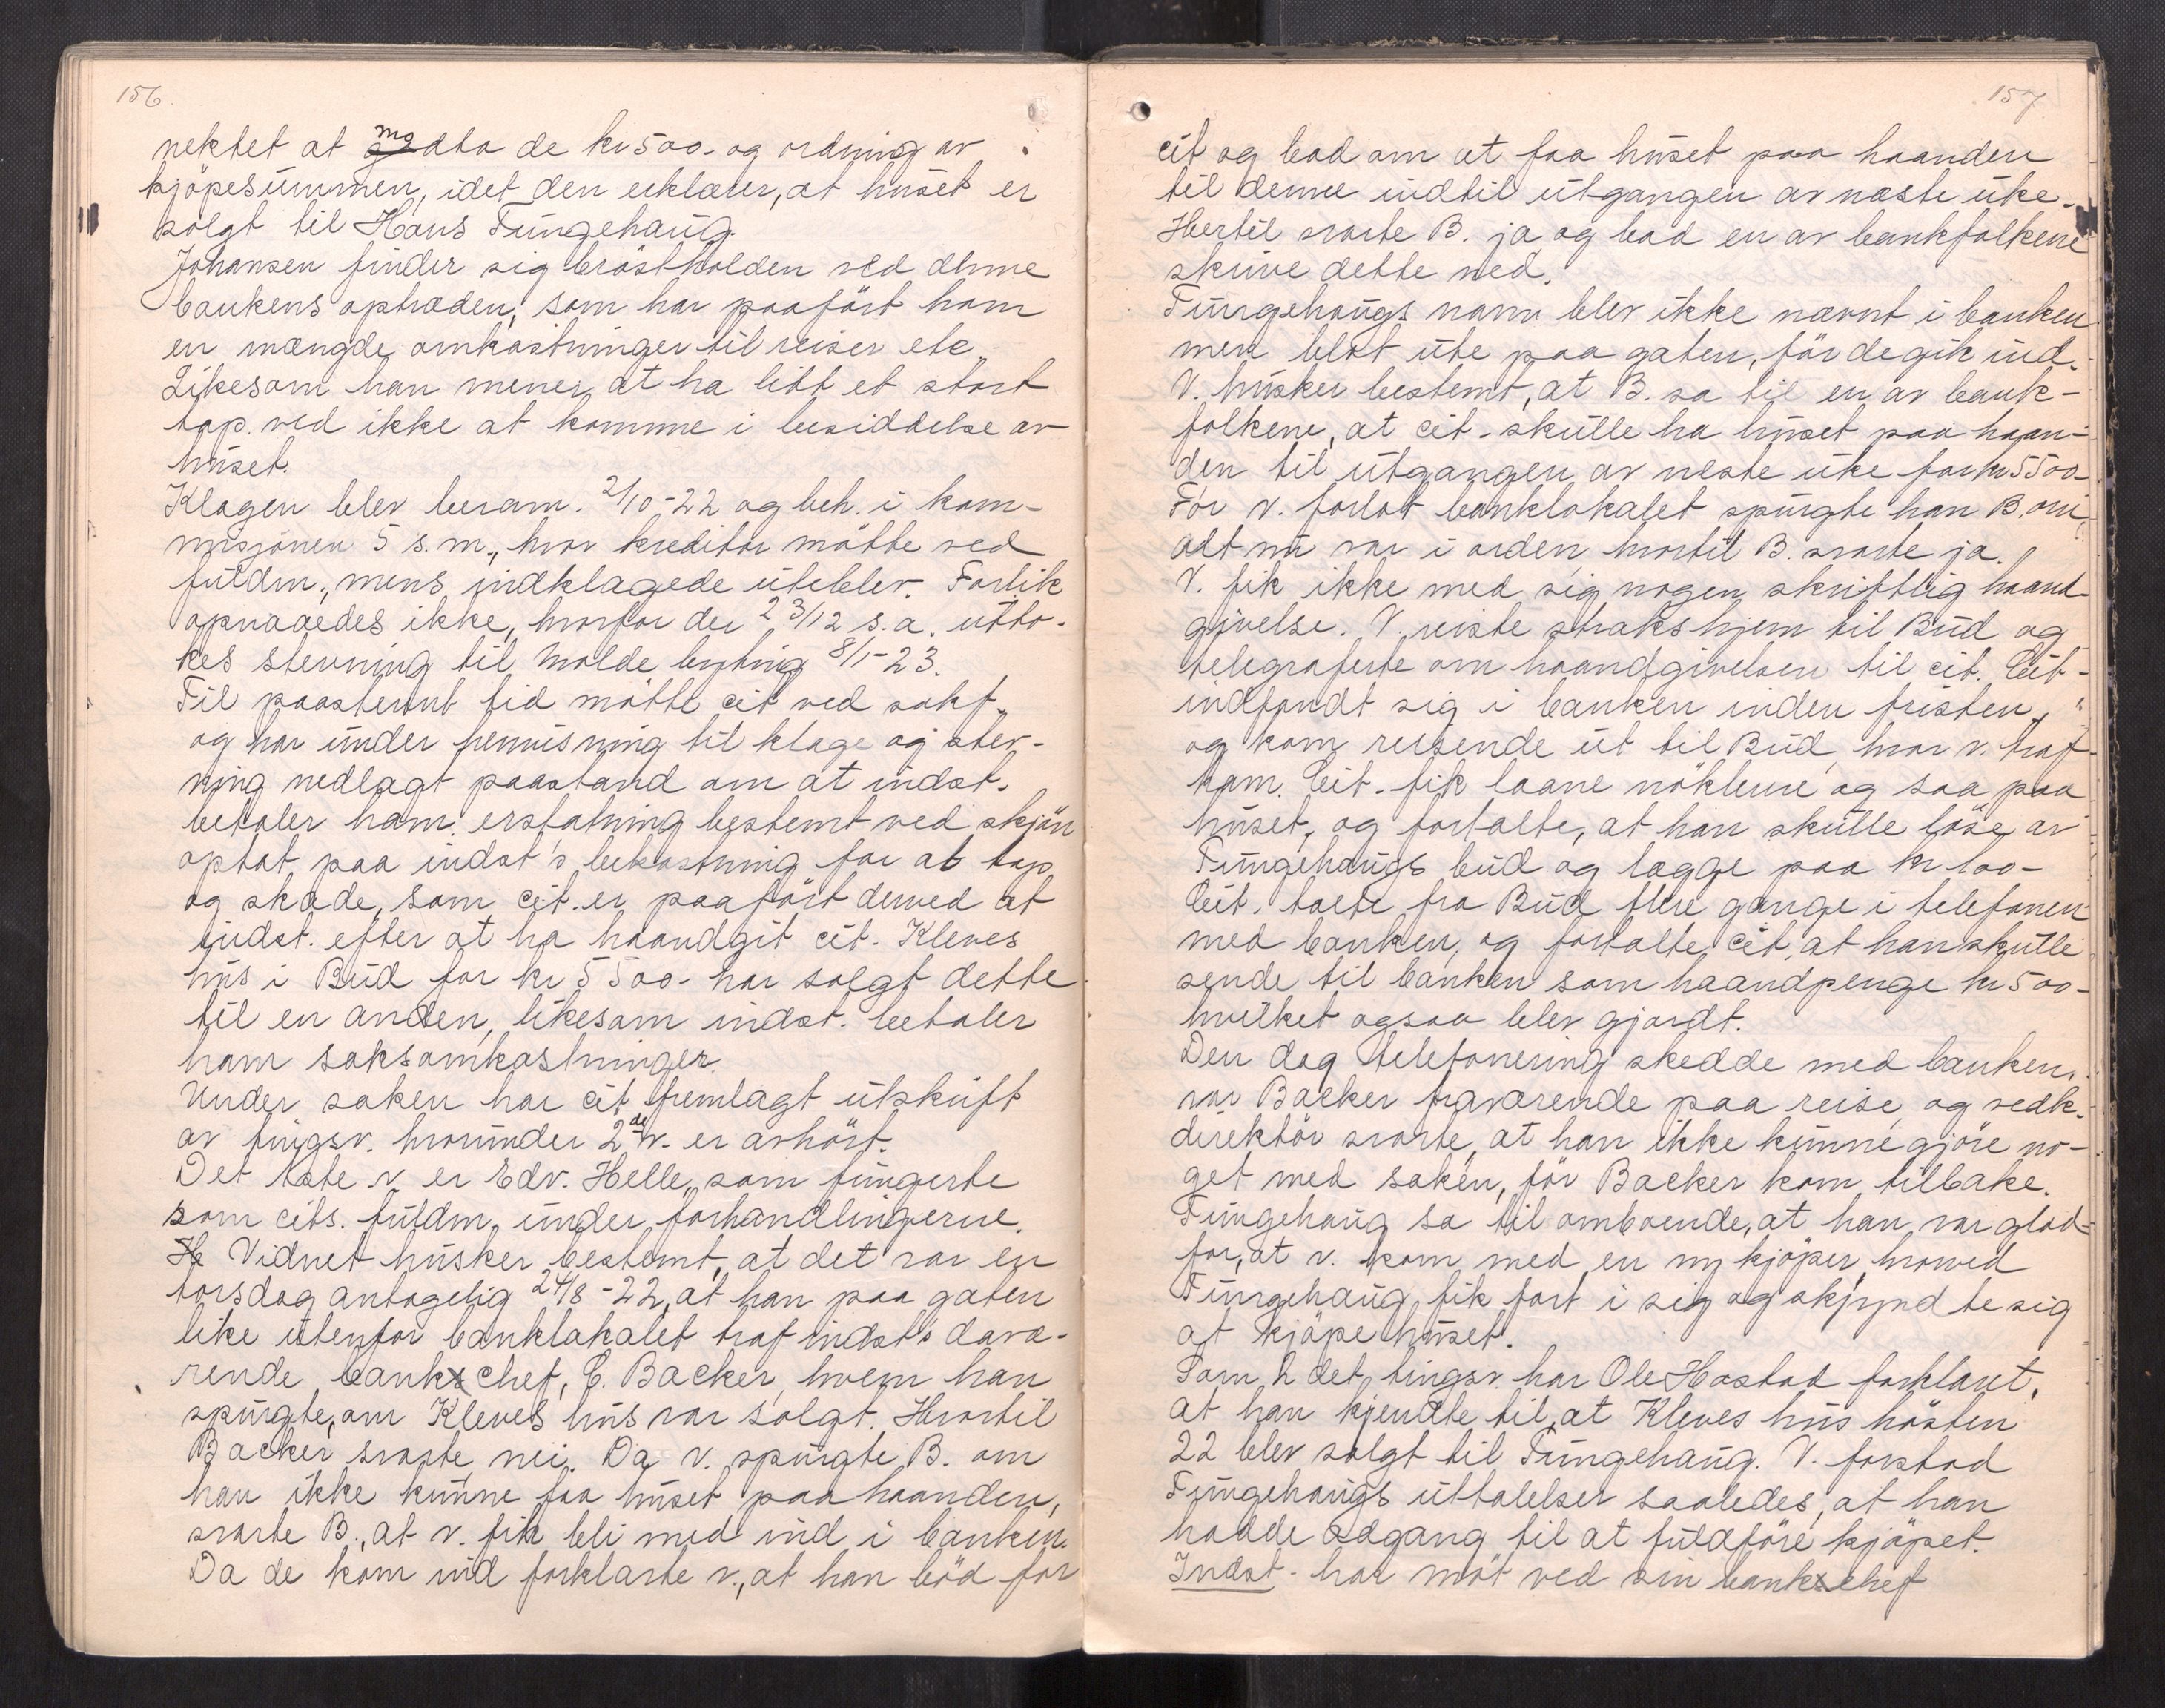 156.
nektet at motta de kr 500- og ordning av
kjöpesummen, idet den erklærer, at huset er
solgt til Hans Tungehaug.
Johansen finder sig bröstholden ved denne
bankens optræden, som har paaført ham
en mængde omkostninger til reiser etc.
Likesom han mener at ha lidt et stort
tap ved ikke at komme i besiddelse av
huset.
Klagen blev beram. 2/10-22 og beh. i kom-
misjonen 5 s.m., hvor kreditor mötte ved
fuldm., mens indklagede uteblev. Forlik
opnaaedes ikke, hvorfor der 23/12 s.a. utto-
kes stevning til Molde byting 8/1-23.
Til paastemt tid mötte cit ved sakf.
og har under henvisning til klage og stev-
ning nedlagt paastand om at indst.
betaler ham erstatning bestemt ved skjön
optat paa indst's bekostning for at tap
og skade, som cit. er paaført derved at
indst. efter at ha haandgit cit. Kleves
hus i Bud for kr 5500- har solgt dette
til en anden, likesom indst. betaler
ham saksomkostninger.
Under saken har cit fremlagt utskrift
av tingsv. hvorunder 2de v. er avhört.
Det 1ste v. er Edv. Helle, som fungerte
som cits. fuldm. under forhandlingerne.
He Vidnet husker bestemt, at det var en
torsdag antagelig 24/8-22, at han paa gaten
like utenfor banklokalet traf indst's davæ-
rende bankschef, C. Backer, hvem han
spurgte, om Kleves hus var solgt. Hvortil
Backer svarte nei. Da v. spurgte B. om
han ikke kunne faa huset paa haanden,
svarte B., at v. fik bli med ind i banken.
Da de kom ind forklarte v., at han böd for
157
cit og bad om at faa huset paa haanden
til denne indtil utgangen av næste uke.
Hertil svarte B. ja og bad en av bankfolkene
skrive dette ned.
Tungehaugs navn blev ikke nævnt i banken
men blot ute paa gaten, för de gik ind.
V. husker bestemt, at B. sa til en av bank-
folkene, at cit. skulle ha huset paa haan-
den til utgangen av neste uke for kr 5500-
För v. forlot banklokalet spurgte han B. om
alt nu var i orden, hvortil B. svarte ja.
V. fik ikke med sig nogen skriftlig haand-
givelse. V. reiste straks hjem til Bud og
telegraferte om haandgivelsen til cit. Cit-
indfandt sig i banken inden fristen,
og kom reisende ut til Bud, hvor v. traf
ham. Cit. fik laane nöklene og saa paa
huset, og fortalte, at han skulle löse av
Tungehaugs bud og lægge paa kr 100-
Cit. talte fra Bud flere gange i telefonen
med banken, og fortalte cit, at han skulle
sende til banken som haandpenge kr 500-
hvilket ogsaa blev gjordt.
Den dag telefonering skedde med banken,
var Backer fraværende paa reise og vedk.
direktör svarte, at han ikke kunne gjöre no-
get med saken, för Backer kom tilbake.
Tungehaug sa til omboende, at han var glad
for, at v. kom med en ny kjöper, hvorved
Tungehaug fik fart i sig og skjyndte sig
at kjöpe huset.
Som 2 det tingsv. har Ole Hostad forklart,
at han kjendte til, at Kleves hus hösten
22 blev solgt til Tungehaug. V. forstod
Tungehaugs uttalelser saaledes, at han
hadde adgang til at fuldföre kjöpet.
Indst. har möt ved sin bankschef